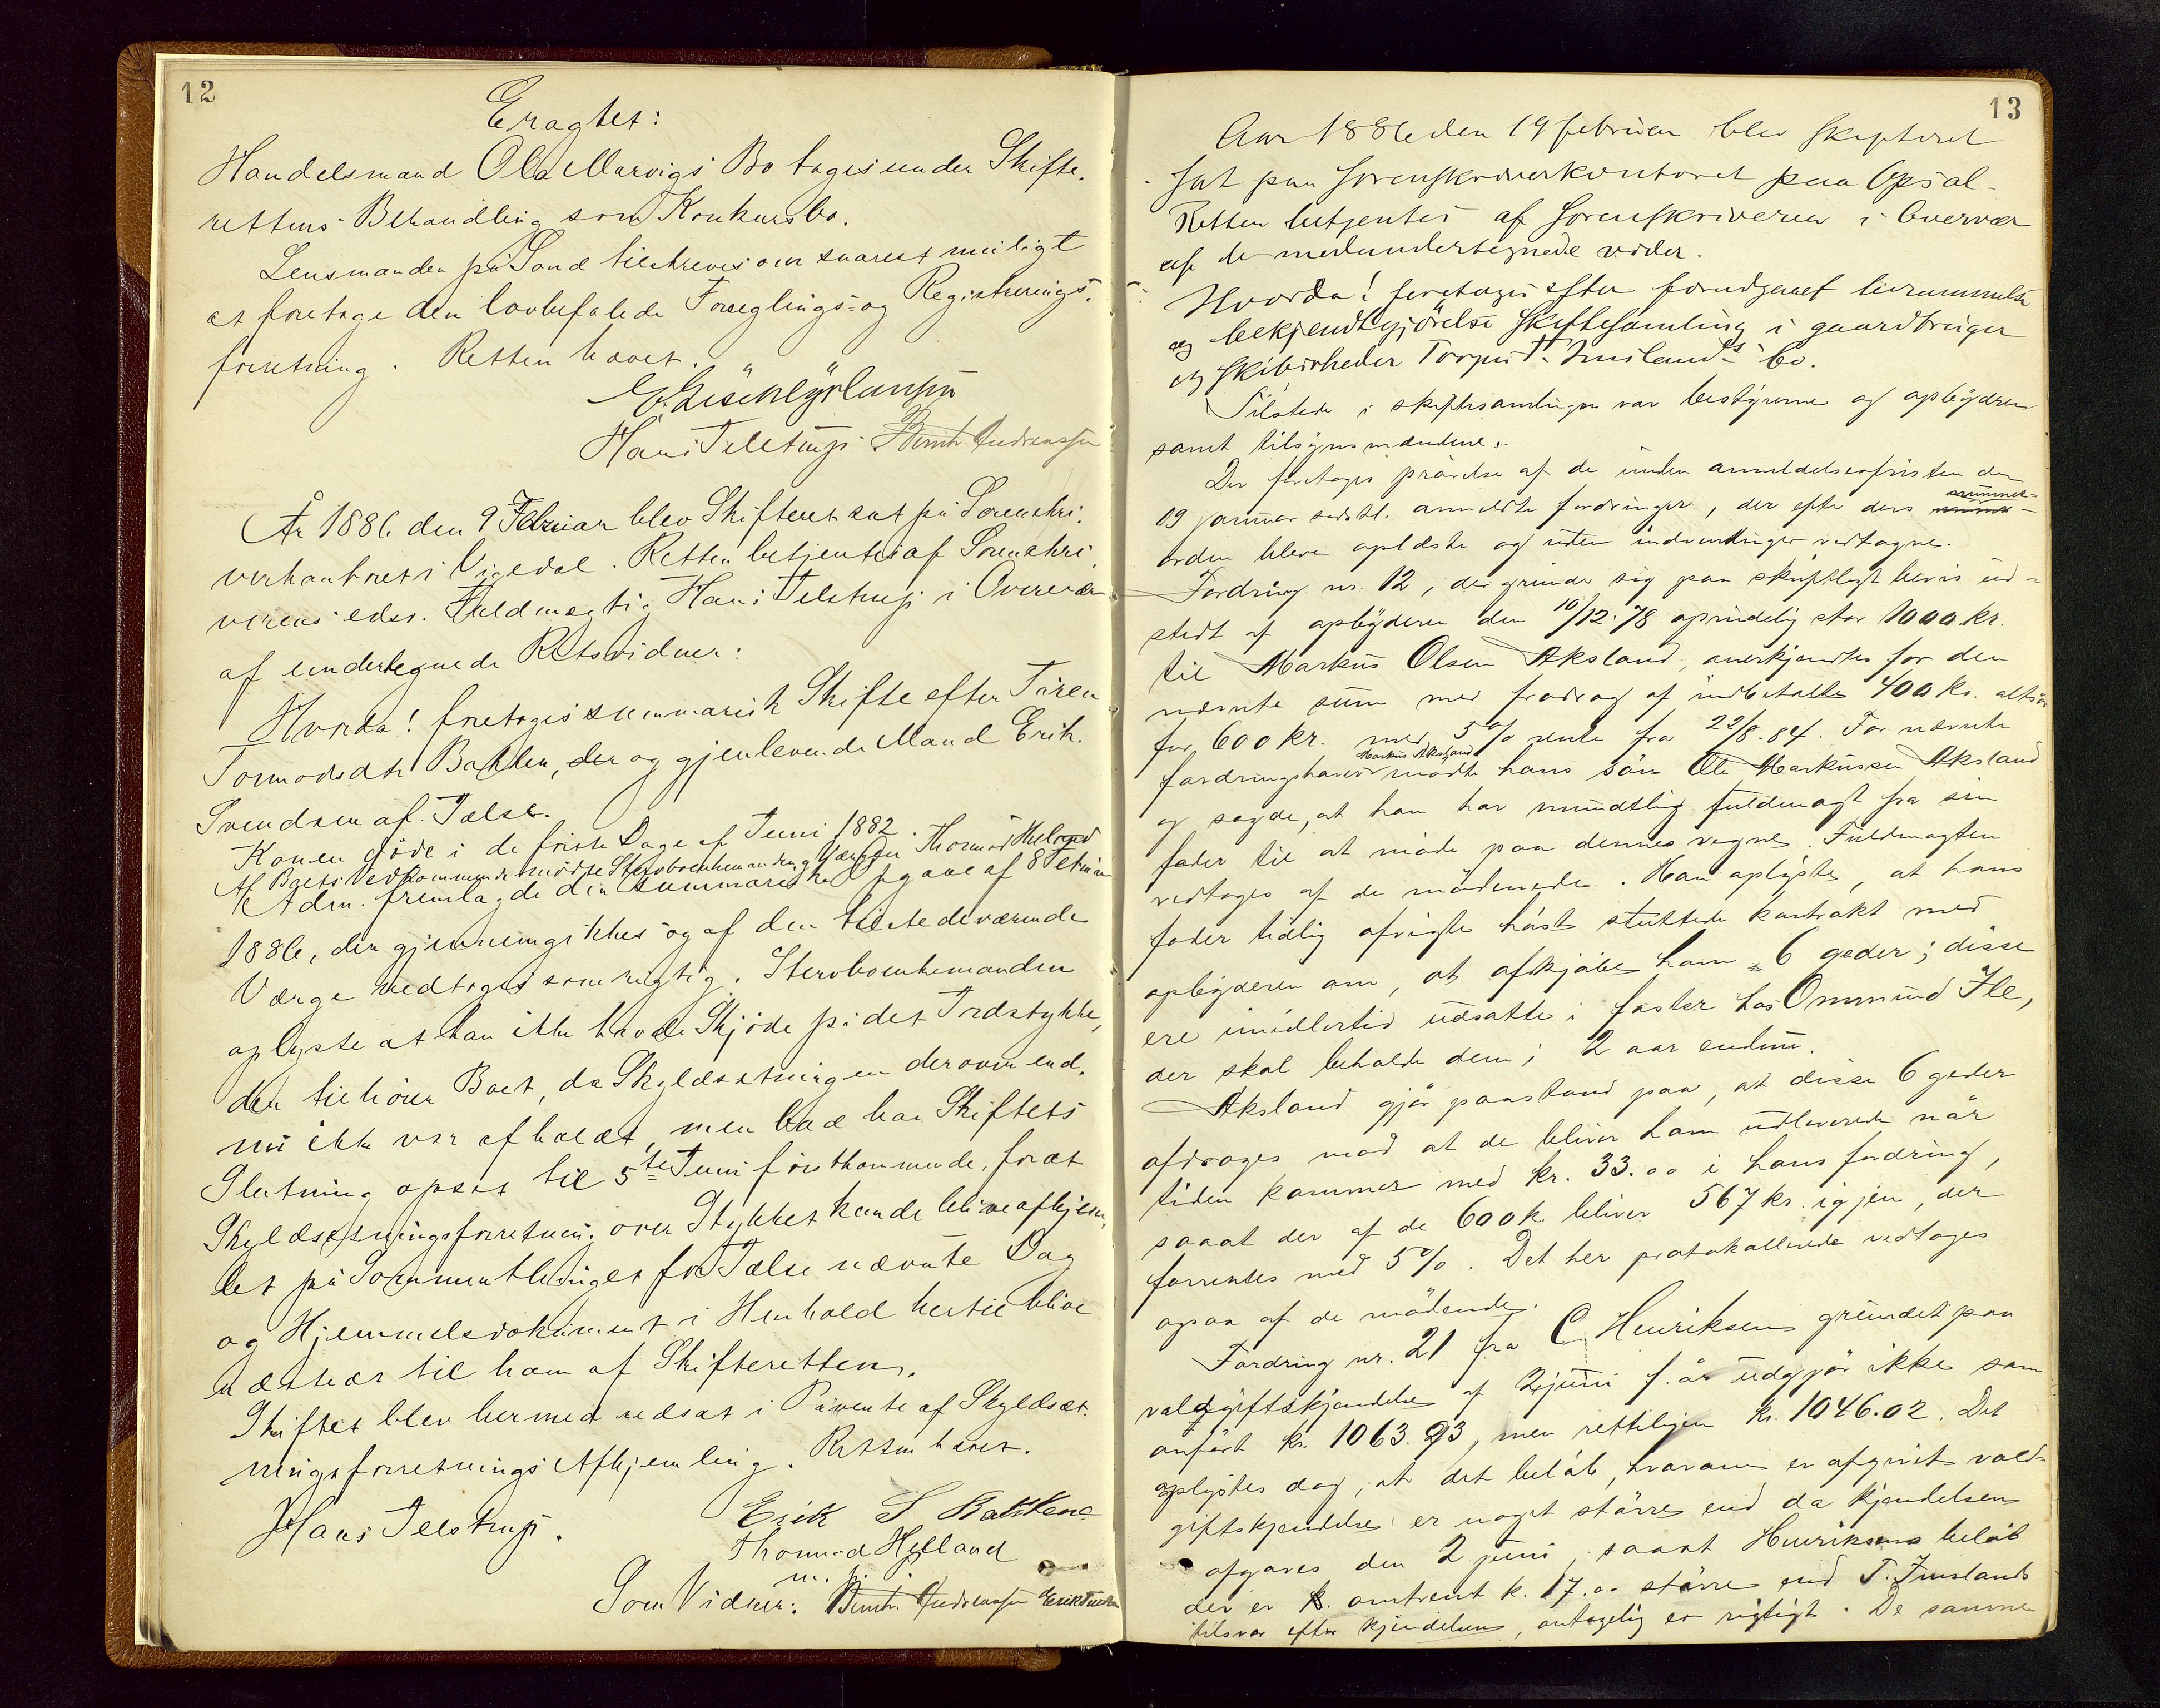 12
Eragtet:
Handelsmand Ole Marvigs Bo tages under Skifte-
rettens Behandling som Konkursbo.
Lensmanden på Sand tilskreves om snarest muligt
at foretage den lovbefalede Forseglings- og Registrerings-
forretning. Retten hævet.
Hans Telstrup Bernh. Andreassen
År 1886 den 9 Februar blev Skifteret sat på Sorenskri-
verkontoret i Vigedal. Retten betjentes af Sorenskri-
verens edsv. Fuldmægtig Hans Telstrup i Overvær
af undertegnede Retsvidner:
Hvorda! foretoges summarisk Skifte efter
Tormodsdtr Bakken, der og gjenlevende Mand Erik
Svendsen af Tælse.
Konen døde i de første Dage af Juni 1882.
Af Boets Vedkommende mødte Stervboenkemanden og Værgen Thormod
Adm. fremlagde den summariske Opgave af 8 Februar
1886, der gjennemgikkes og af den tilstedeværende
Værge vedtoges som rigtig. Stervboenkemanden
oplyste at han ikke havde Skjøde på det Jordstykke,
der tilhører Boet, da Skyldsætningen derover end-
nu ikke var afholdt, men bad han Skiftets
Slutning opsat til 5te Juni førstkommende, forat
Skyldsætningsforretning over Stykket kunde blive afhjem-
let på Sommerthinget for Tælse nævnte Dag
og Hjemmelsdokument i Henhold hertil blive
udstedt til ham af Skifteretten.
Skiftet blev hermed udsat i Påvente af Skyldsæt-
ningsforretnings Afhjemling. Retten hævet.
Hans Telstrup. Erik S Bakkene
Thormod Helland
m. p.
Som Vidner: Bernh. Andreassen
13
Aar 1886 den 19 februar blev skifteret
sat paa sorenskriverkontoret paa Opsal.
Retten betjentes af sorenskriveren i Overvær
af de medundertegnede vidner.
Hvorda! foretoges efter forudgaaet berammelse
og bekjendtgjörelse skiftesamling i gaardbruger
og skibsrheder Torger T. Imslands bo.
Tilstede i skiftesamlingen var bestyreren og opbyderen
samt tilsynsmændene.
Der foretoges prövelse af de inden anmeldelsesfristen den
19 januar sidstl. anmeldte fordringer, der efter ders nummer-
orden bleve oplæste og uden indvendinger vedtagne.
Fordring nr. 12, der grunder sig paa skriftligt bevis ud-
stedt af opbyderen den 10/12.78 oprindelig stor 1000 kr.
til Markus Olsen Aksland, anerkjendtes for den
nævnte sum med fradrag af indbetalte 400 kr. altså
for 600 kr. med 5% rente fra 22/8.84. For nævnte
fordringshaver Markus Aksland mödte hans sön Ole Markussen Aksland
og sagde, at han har mundtlig fuldmagt fra sin
fader til at möde paa dennes vegne. Fuldmagten
vedtoges af de mödende. Han oplyste, at hans
fader tidlig afvigte höst sluttede kontrakt med
opbyderen om, at afkjöbe ham 6 geder; disse
ere imidlertid udsatte i foster hos Ommund Ile,
der skal beholde dem i 2 aar endnu.
Aksland gjör paastand paa, at disse 6 geder
afdrages mod at de bliver ham udleverede når
tiden kommer med kr. 33.00 i hans fordring,
saaat der af de 600 k. bliver 567 kr. igjen, der
forrentes med 5%. Det her protokollerede vedtoges
ogsaa af de mödende.
Fordring nr. 21 fra C. Henriksen grundet paa
voldgiftskjendelse af 2 juni f. år udgjör ikke som
anfört kr. 1063.93, men rettelig kr. 1046.02. Det
oplystes dog, at det belöb, hvorom er afgivet vold-
giftskjendelse er noget större end da kjendelsen
afgaves den 2 juni, saaat Henriksens belöb
der er omtrent k. 17.00 större end T. Imslands
tilsvar efter kjendelsen, antagelig er rigtigt. De samme